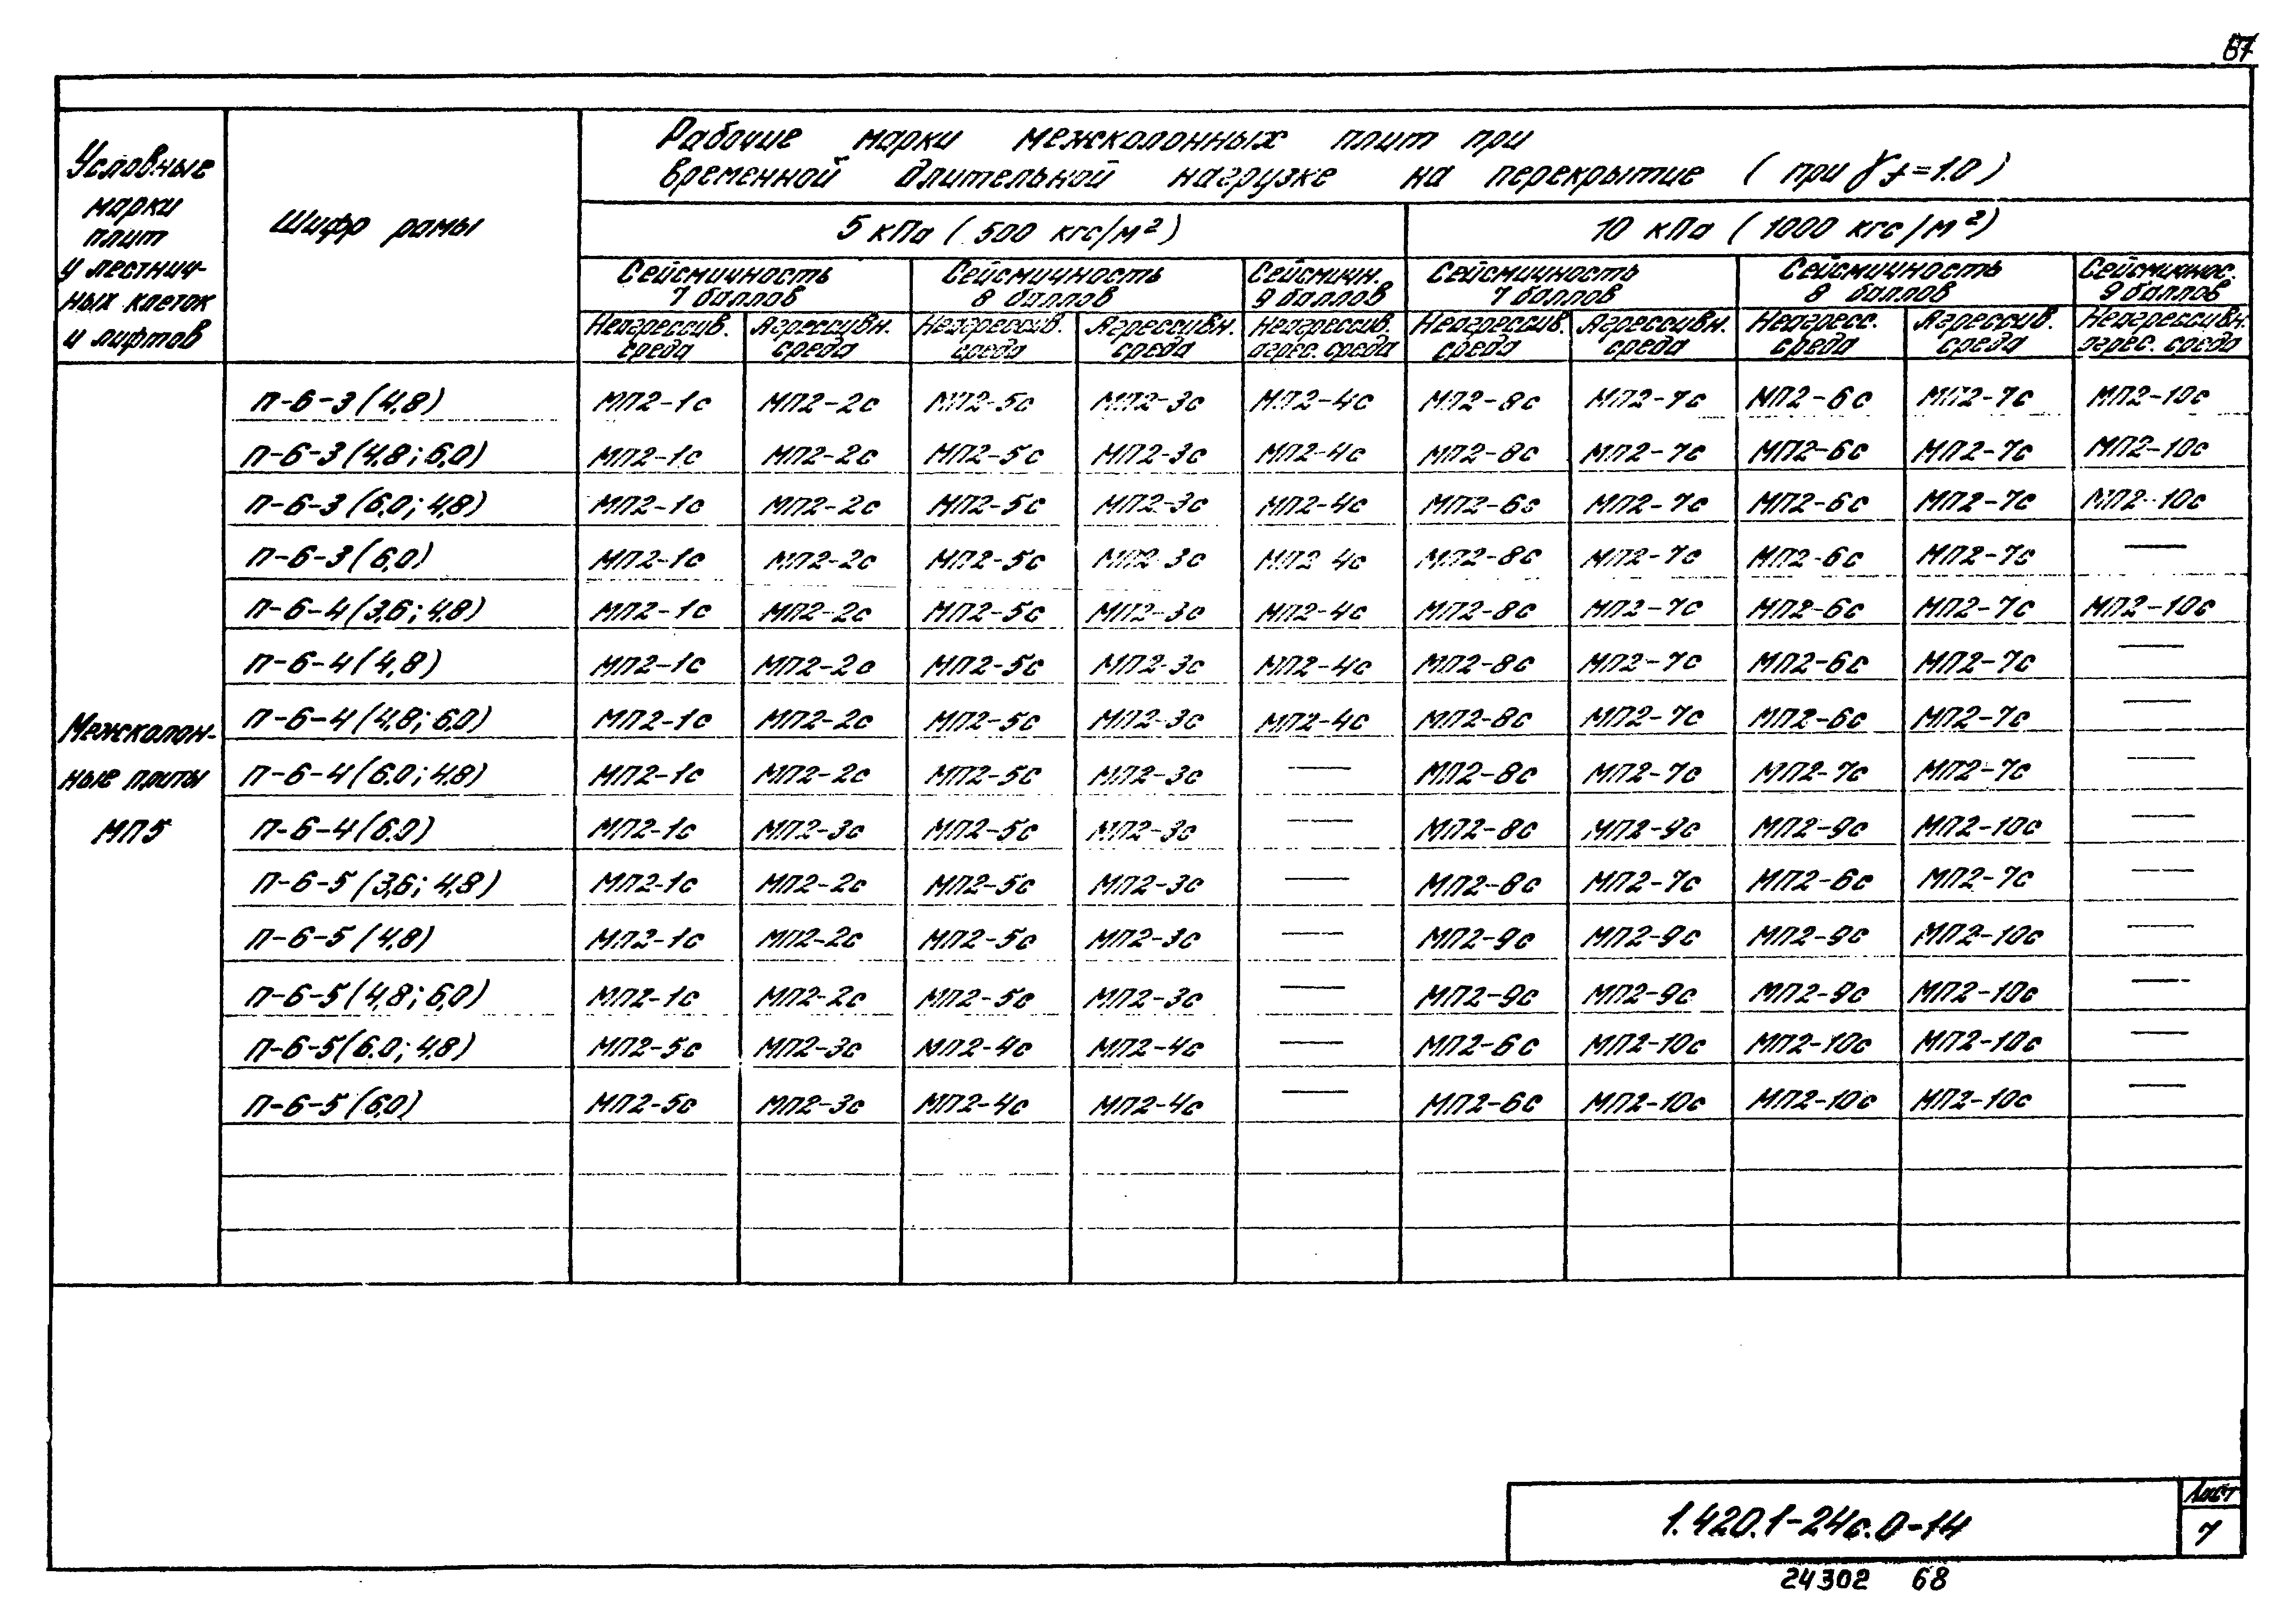 67
Условные марки плит у лестнич- ных клеток и лифтов
Шифр рамы
Рабочие марки межколонных плит при
временной длительной нагрузке на перекрытие ( при γf=1.0 )
5 кПа ( 500 кгс/м²)
10 кПа ( 1000 кгс/м²)
Сейсмичность 7 баллов
Сейсмичность 8 баллов
Сейсмичн. 9 баллов
Сейсмичность 7 баллов
Сейсмичность 8 баллов
Сейсмичнос. 9 баллов
Неагрессив. среда
Агрессивн. среда
Неагрессив. среда
Агрессивн. среда
Неагрессив. агрес. среда
Неагрессив. среда
Агрессивн. среда
Неагресс. среда
Агрессив. среда
Неагрессивн. агрес. среда
Межколон- ные плиты МП5
П-6-3(4,8) МП2-1с МП2-2с МП2-5с МП2-3с МП2-4с МП2-8с МП2-7с МП2-6с МП2-7с МП2-10с
П-6-3(4,8; 6,0) МП2-1с МП2-2с МП2-5с МП2-3с МП2-4с МП2-8с МП2-7с МП2-6с МП2-7с МП2-10с
П-6-3(6,0; 4,8) МП2-1с МП2-2с МП2-5с МП2-3с МП2-4с МП2-6с МП2-7с МП2-6с МП2-7с МП2-10с
П-6-3(6,0) МП2-1с МП2-2с МП2-5с МП2-3с МП2-4с МП2-8с МП2-7с МП2-6с МП2-7с —
П-6-4(3,6; 4,8) МП2-1с МП2-2с МП2-5с МП2-3с МП2-4с МП2-8с МП2-7с МП2-6с МП2-7с МП2-10с
П-6-4(4,8) МП2-1с МП2-2с МП2-5с МП2-3с МП2-4с МП2-8с МП2-7с МП2-6с МП2-7с —
П-6-4(4,8; 6,0) МП2-1с МП2-2с МП2-5с МП2-3с МП2-4с МП2-8с МП2-7с МП2-6с МП2-7с —
П-6-4(6.0; 4,8) МП2-1с МП2-2с МП2-5с МП2-3с — МП2-8с МП2-7с МП2-7с МП2-7с —
П-6-4(6.0) МП2-1с МП2-3с МП2-5с МП2-3с — МП2-8с МП2-9с МП2-9с МП2-10с —
П-6-5(3,6; 4,8) МП2-1с МП2-2с МП2-5с МП2-3с — МП2-8с МП2-7с МП2-6с МП2-7с —
П-6-5(4,8) МП2-1с МП2-2с МП2-5с МП2-3с — МП2-9с МП2-9с МП2-9с МП2-10с —
П-6-5(4,8; 6,0) МП2-1с МП2-2с МП2-5с МП2-3с — МП2-9с МП2-9с МП2-9с МП2-10с —
П-6-5(6.0; 4,8) МП2-5с МП2-3с МП2-4с МП2-4с — МП2-6с МП2-10с МП2-10с МП2-10с —
П-6-5(6,0) МП2-5с МП2-3с МП2-4с МП2-4с — МП2-6с МП2-10с МП2-10с МП2-10с —
1.420.1-24с.0-14
Лист
7
24302 68